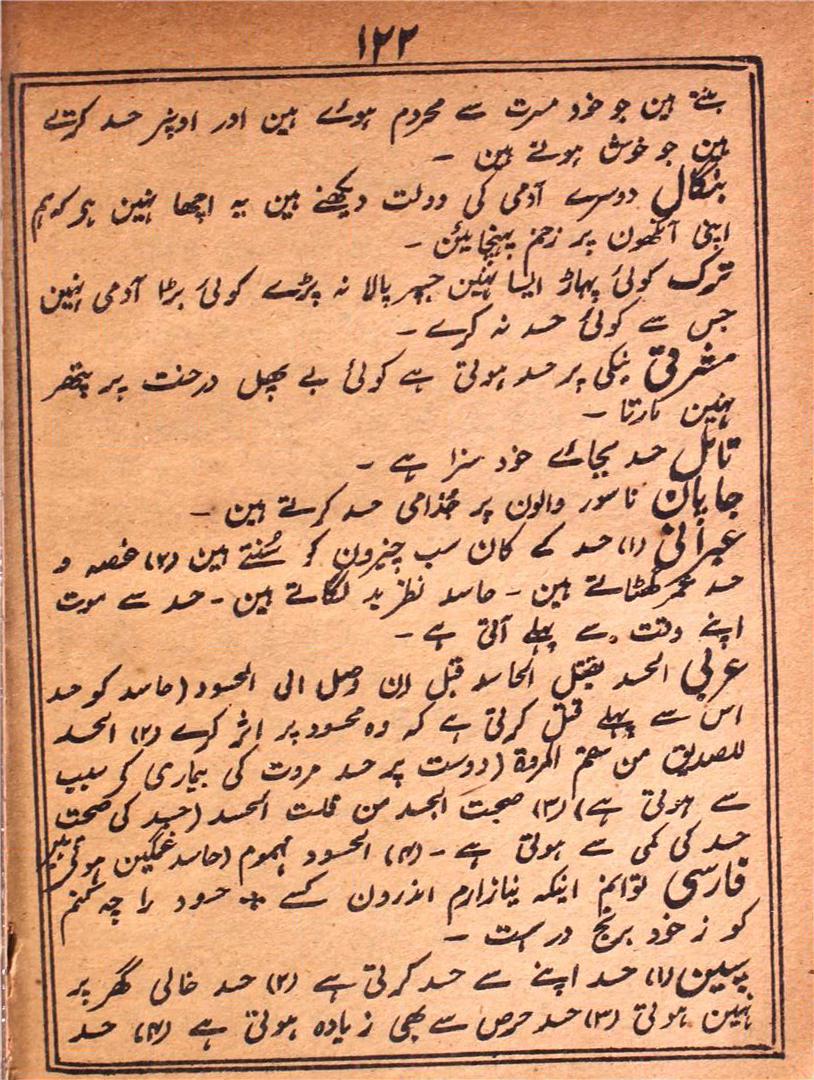 ۱۲۲
بنتے ہین جو خود مسرت سے محروم ہوئے ہین اور اوپنر حسد کرتے
ہین جو خوش ہوتے ہین -
بنگال دوسرے آدمی کی دولت دیکھنے ہین یہ اچھا نہین ہی کہ ہم
اپنی آنکھون پر زخم پہنچایئن -
ترک کوئی پہاڑ ایسا نہین جسپر پالا نہ پڑے کوئی بڑا آدمی نہین
جس سے کوئی حسد نہ کرے -
مشرقی نیکی پر حسد ہوتی ہے کوئی بے پھل درخت پر پتھر
نہین مارتا -
تامل حسد بجائے خود سزا ہے -
جاپان ناسور والون پر جُذامی حسد کرتے ہین -
عبرانی (۱) حسد کے کان سب چیزون کو سُنتے ہین (۲) غصہ و
حسد عمر گھٹاتے ہین - حاسد نظر بد لگاتے ہین - حسد سے موت
اپنے وقت سے پہلے آتی ہے -
عربی الحسد یقتل الحاسد قبل ان وصل الی المحسود (حاسد کو حسد
اس سے پہلے قتل کرتی ہے کہ وہ محسود پر اثر کرے (۲) الحسد
للصدیق من سقم المروة (دوست پر حسد مروت کی بیماری کے سبب
سے ہوتی ہے) (۳) صحبت الجسد من قلت الحسد (جسد کی صحت
حسد کی کمی سے ہوتی ہے - (۴) الحسود مہموم (حاسد غمگین ہوتا ہے
فارسی توانم اینکہ نیازارم اندرون کسے * حسود را چہ کنم
کو ز خود برنج درست -
سپین (۱) حسد اپنے سے حسد کرتی ہے (۲) حسد خالی گھر پر
نہین ہوتی (۳) حسد حرص سے بھی زیادہ ہوتی ہے (۴) حسد